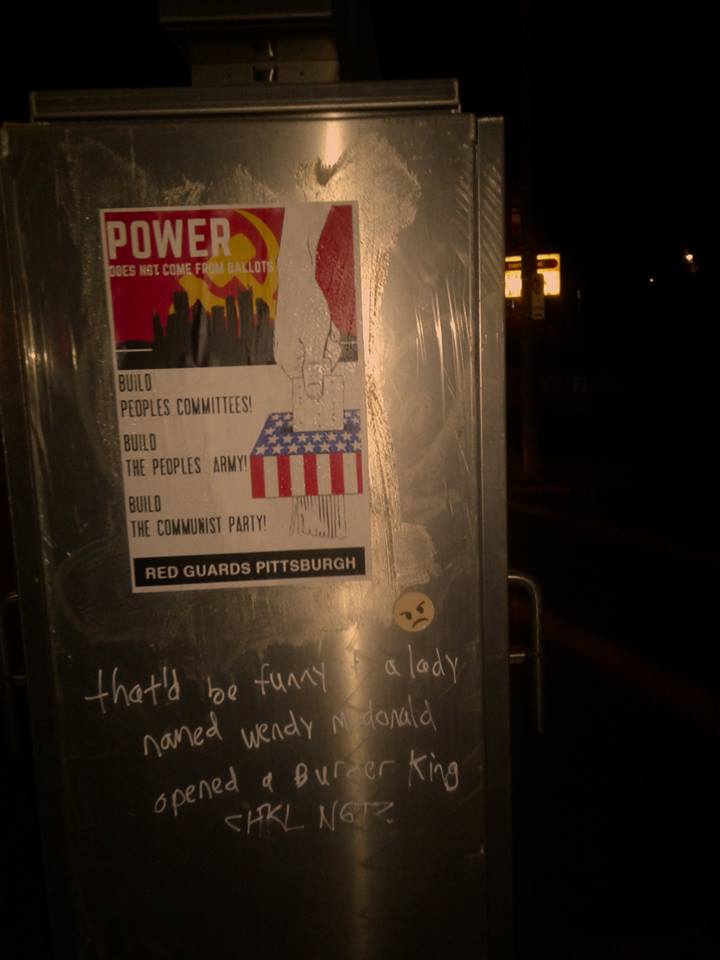 POWER
DOES NOT COME FROM BALLOTS
BUILD
PEOPLES COMMITTEES!
BUILD
THE PEOPLES ARMY!
BUILD
THE COMMUNIST PARTY!
RED GUARDS PITTSBURGH
that'd be funny a lady
named wendy mcdonald
opened a Burger King